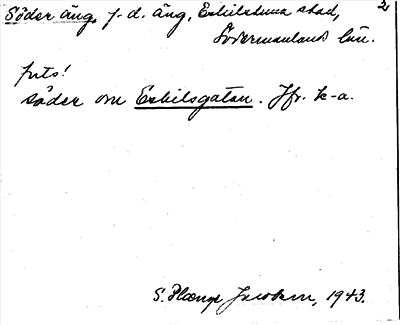 Söder äng, f. d. äng, Eskilstuna stad, 2
Södermanlands län.
futs!
söder om Eskilsgatan. Jfr. k-a.
S. Plænge Jacobson, 1943.